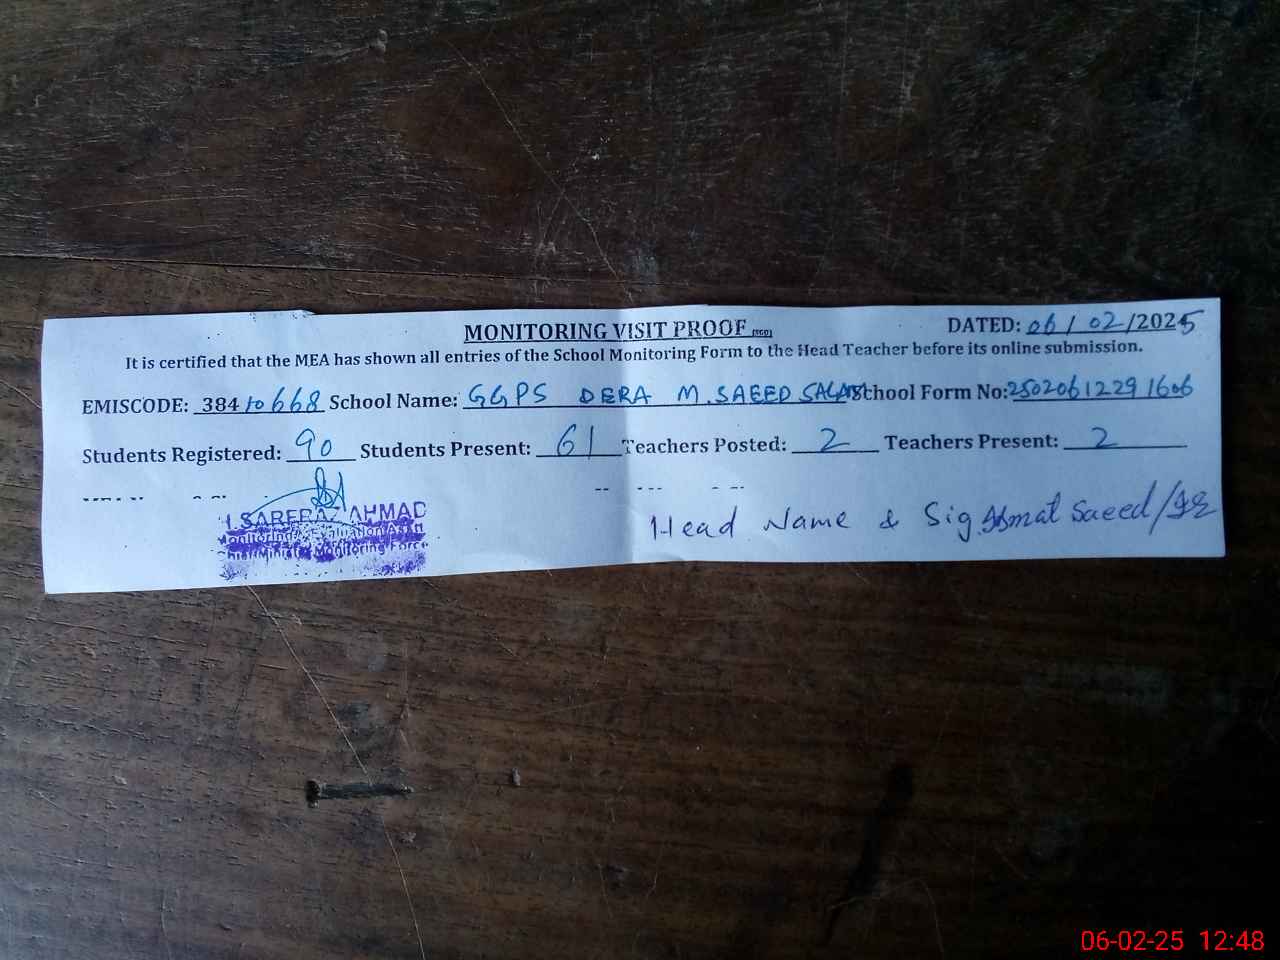 MONITORING VISIT PROOF
DATED: 06/02/2025
It is certified that the MEA has shown all entries of the School Monitoring Form to the Head Teacher before its online submission.
EMISCODE: 38410668 School Name: GGPS DERA M.SAEED School Form No: 25020612291606
Students Registered: 90 Students Present: 61 Teachers Posted: 2 Teachers Present: 2
SARFRAZ AHMAD
Monitoring & Evaluation Assn
Chief Minister Monitoring Force
Head Name & Sig. Asmat Saeed/
06-02-25 12:48